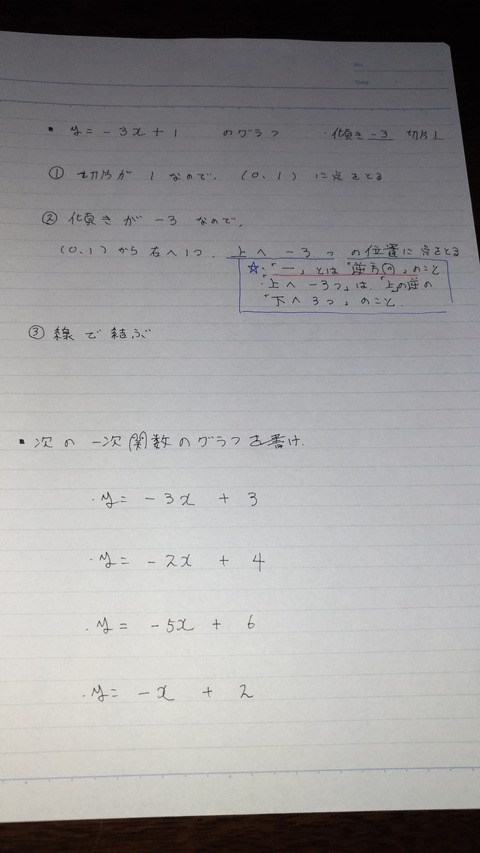 No.
Date
・ y = -3x + 1 のグラフ ・傾き -3 切片 1
① 切片が 1 なので、(0、1) に点をとる
② 傾きが -3 なので、
(0、1) から右へ1つ、上へ -3つ の位置に点をとる
☆・「-」とは「逆方向」のこと
・「上へ -3つ」は「上」の逆の
「下へ3つ」のこと
③ 線で結ぶ
・次の一次関数のグラフを書け.
・y = -3x + 3
・y = -2x + 4
・y = -5x + 6
・y = -x + 2